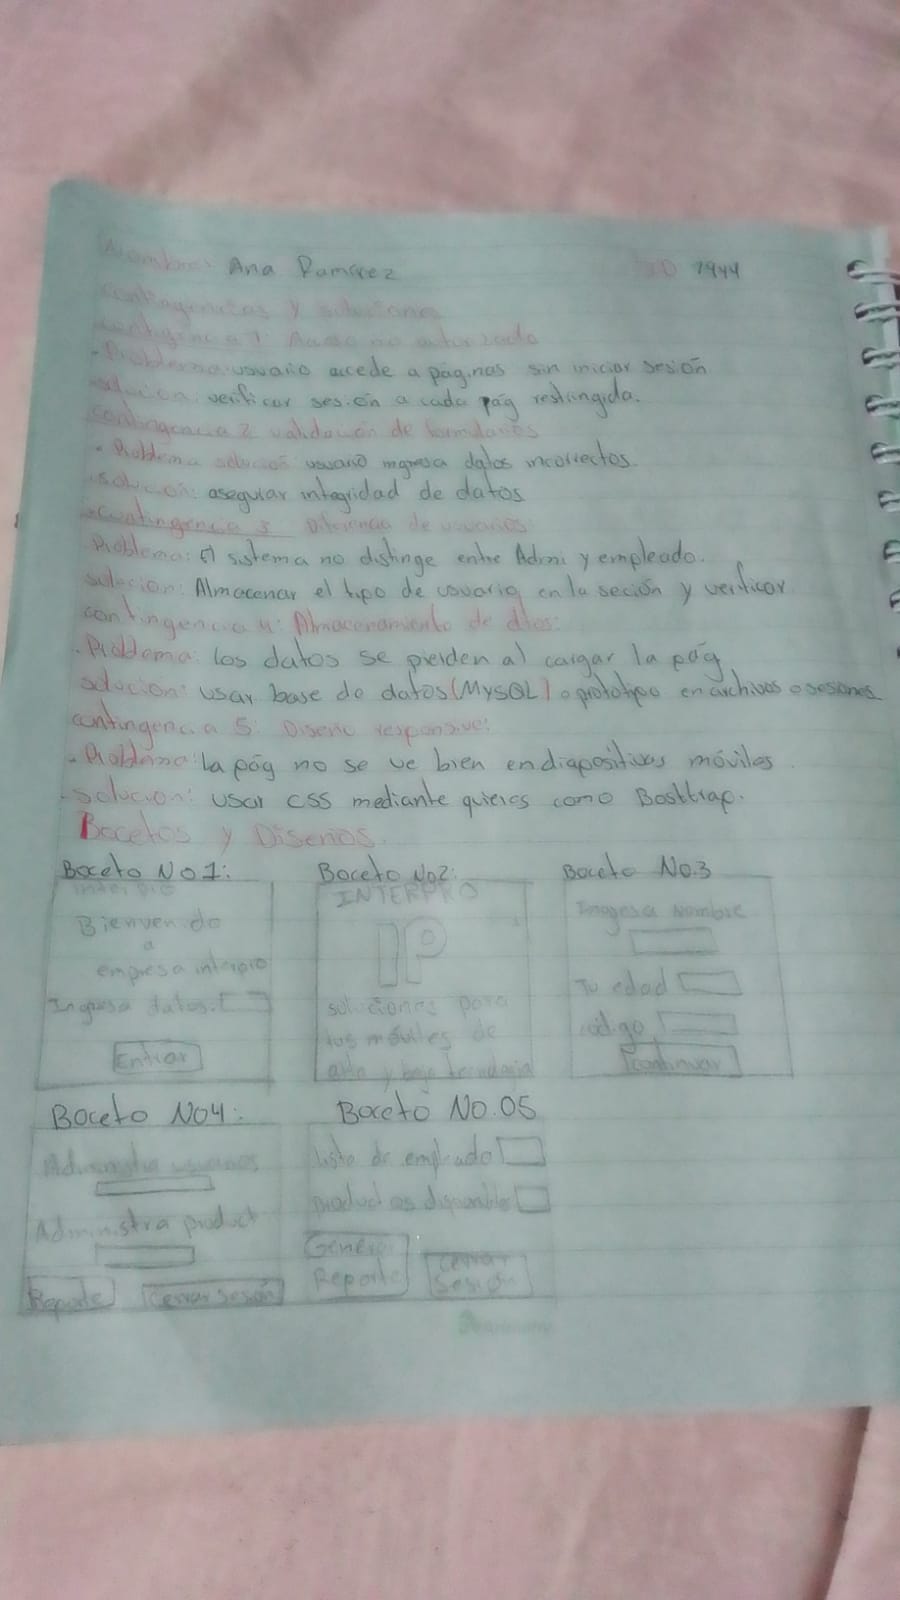 Nombre: Ana Ramirez 1944
contingencias y soluciones
contigencia 1: Acceso no autorizado
- Problema: usuario accede a páginas sin iniciar sesión
solucion: verificar sesión a cada pág restringida.
contingencia 2 validación de formularios
- Problema solucion usuario ingresa datos incorrectos.
solucion: asegurar integridad de datos
contingencia 3 Diferencia de usuarios:
Problema: El sistema no distinge entre Admi y empleado.
solucion: Almacenar el tipo de usuario en la seción y verificar
contingencia 4: Almacenamiento de dtos:
- Problema: los datos se pierden al cargar la pág
solucion: usar base de datos (MySQL) o prototipo en archivos o sesiones
contingencia 5: Diseño responsive:
- Problema: la pág no se ve bien en diapositivos móviles.
- solucion: usar css mediante quieres como Bosttrap.
Bocetos y Diseños.
Boceto No 1: Boceto No2: Boceto No.3
Bienvenido
a
empresa interpro
Ingresa datos:
Entrar
INTERPRO
IP
soluciones para
los móviles de
alta y baja tecnologia
Ingresa Nombre
Tu edad
código
continuar
Boceto No4: Boceto No.05
Administra usuarios
Administra product
Reporte Cerrar sesión
lista de empleado
productos disponibles
Genera
Reporte
Cerrar
Sesión